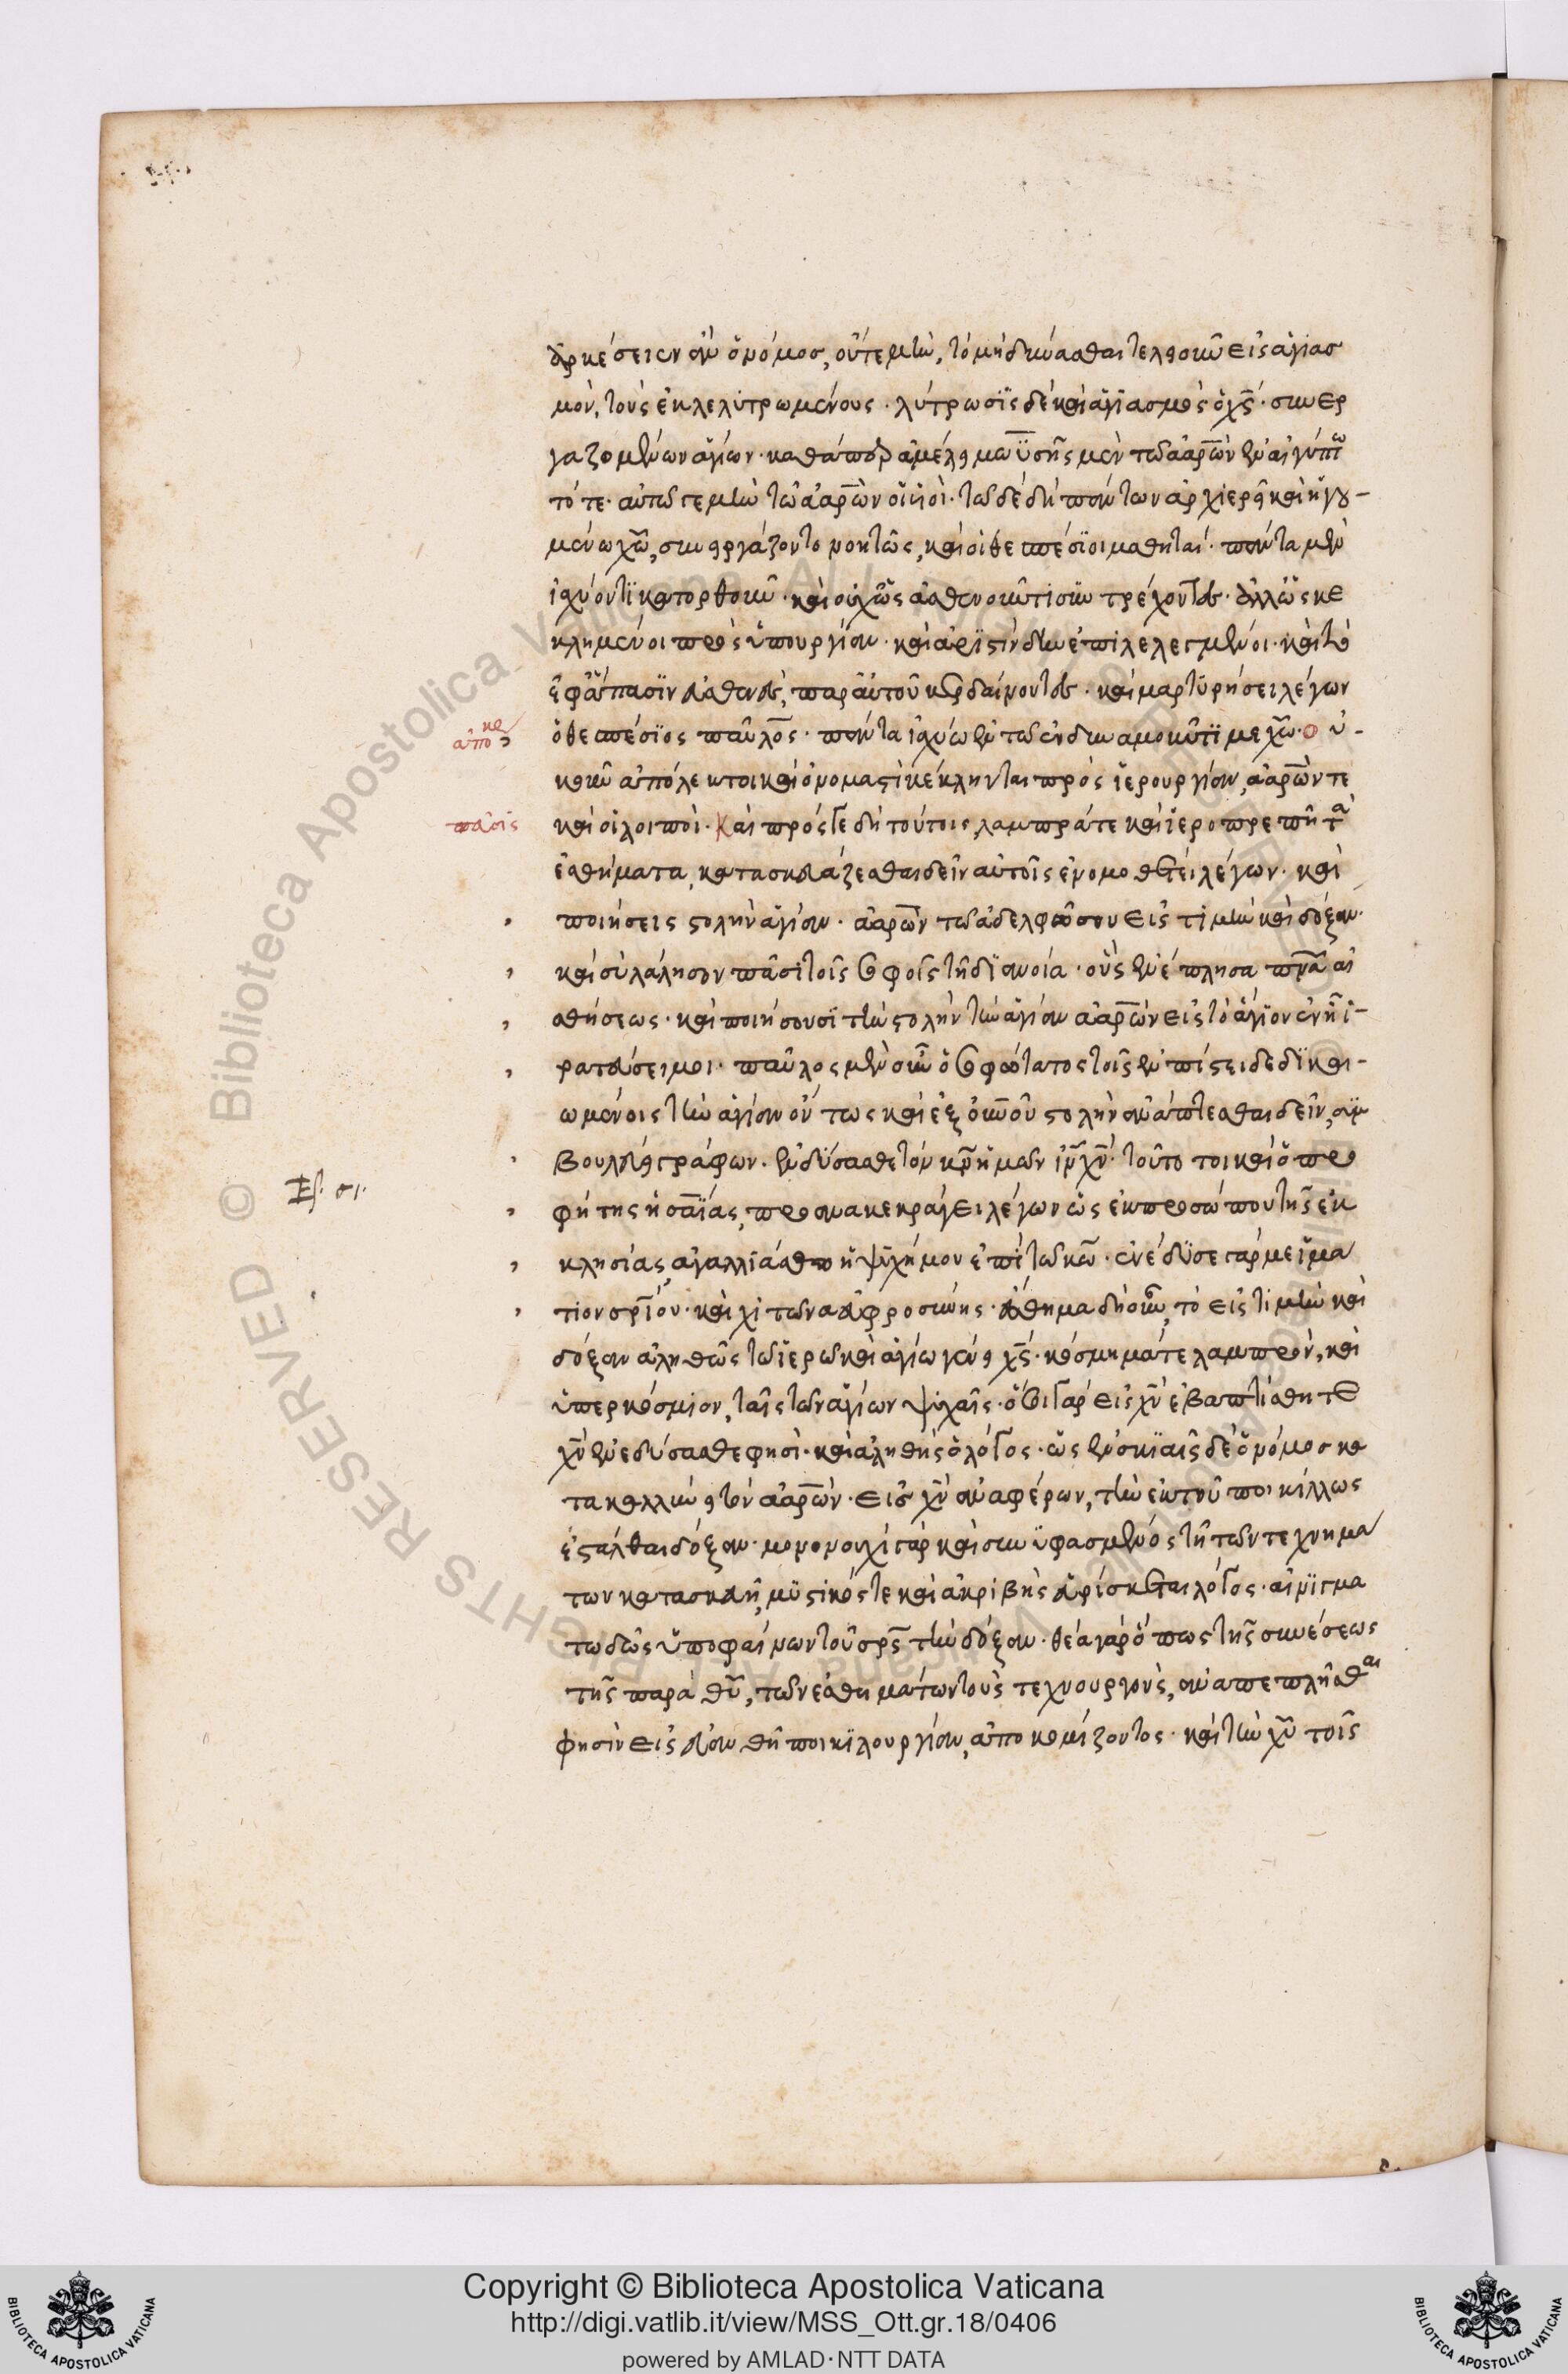 ἀρκέσειεν ἂν ὁ νόμος, οὔτε μὴν, τὸ μὴ δύνασθαι τελειοῦν εἰς ἁγιασ
μὸν, τοὺς ἐκλελυτρωμένους. λύτρωσις δὲ καὶ ἁγιασμὸς ὁ χς. συνερ
γαζομένων ἁγίων. καθάπερ ἀμέλει μωϋσῆς μὲν τῶ ἀαρὼν ἐν αἰγύπτω
τότε. αὐτῶ γε μὴν τῶ ἀαρὼν οἱ υἱοὶ. τῶ δὲ δὴ πάντων ἀρχιερεῖ καὶ ἡγου-
μένω χω, συνειργάζοντο νοητῶς, καὶ οἱ θεσπέσιοι μαθηταί. πάντα μὲν
ἰσχύοντι κατορθοῦν. καὶ οὐχ ὡς ἀσθενοῦντι συντρέχοντες. ἀλλ' ὡς κε
κλημένοι πρὸς ὑπουργίαν. καὶ
ἐφ' ἅπασιν εὐσθενεῖν, παρ' αὐτοῦ κερδαίνοντες. καὶ μαρτυρήσει λέγων
ὁ θεσπέσιος παῦλος. πάντα ἰσχύω ἐν τῶ ἐνδυναμοῦντί με χω. ο ὐ-
κοῦν ἀπόλεκτοι καὶ ὀνομαστὶ κέκληνται πρὸς ἱερουργίαν, ἀαρών τε
καὶ οἱ λοιποὶ. Καὶ πρός γε δὴ τούτοις, λαμπρά τε καὶ ἱεροπρεπῆ τὰ
ἐσθήματα, κατασκευάζεσθαι δεῖν αὐτοῖς ἐνομοθέτει λέγων. καὶ
ποιήσεις στολὴν ἁγίαν. ἀαρὼν τῶ ἀδελφῶ σου εἰς τιμὴν καὶ δόξαν.
καὶ σὺ λάλησον πᾶσι τοῖς σοφοῖς τῆ διανοία. οὓς ἐνέπλησα πνα αἰ
σθήσεως. καὶ ποιήσουσι τὴν στολὴν τὴν ἁγίαν ἀαρὼν εἰς τὸ ἅγιον ἐν ἧ ἱ-
ρατεύσει μοι. παῦλος μὲν οὖν ὁ σοφώτατος τοῖς ἐν πίστει δεδικαι-
ωμένοις τὴν ἁγίαν ὄντως καὶ ἐξ οὐνοῦ στολὴν ἀνάπτεσθαι δεῖν, συμ
βουλεύει γράφων. ἐνδύσασθε τὸν κν ἡμῶν ιν χν. τοῦτό τοι καὶ ὁ προ
φήτης ἡσαΐας, προανακεκράγει λέγων ὡς ἐκ προσώπου τῆς ἐκ
κλησίας, ἀγαλλιάσθω ἡ ψυχή μου ἐπὶ τῶ κω. ἐνέδυσε γάρ με ἱμά
τιον σριον. καὶ χιτῶνα εὐφροσύνης. ἔσθημα δὴ οὖν, τὸ εἰς τιμὴν καὶ
δόξαν ἀληθῶς τῶ ἱερῶ καὶ ἁγίω γένει χς. κόσμημά τε λαμπρὸν, καὶ
ὑπερκόσμιον, ταῖς τῶν ἁγίων ψυχαῖς. ὅσοι γὰρ εἰς χν ἐβαπτίσθητε
χν ἐνεδύσασθε φησὶ. καὶ ἀληθὴς ὁ λόγος. ὡς ἐν σκιαῖς δὲ ὁ νόμος κα
τακαλλύνει τὸν ἀαρὼν. εἰς χν ἀναφέρων, τὴν ἐκ τοῦ ποικίλλως
ἐστάλθαι δόξαν. μονονουχὶ γὰρ καὶ συνυφασμένος τῆ τῶν τεχνημά
των κατασκευῆ, μυστικός τε καὶ ἀκριβὴς εὑρίσκεται λόγος. αἰνιγμα
τωδῶς ὑποφαίνων τοῦ σρς τὴν δόξαν. θέα γὰρ ὅπως τῆς συνέσεως
τῆς παρὰ θυ, τῶν ἐσθημάτων τοὺς τεχνουργοὺς, ἀναπεπλῆσθαι
φησὶν εἰς εὐσθενῆ ποικιλουργίαν, ἀποκομίζοντος. καὶ τὴν χυ τοῖς
απο κε
πᾶσις
Es. 61.
Copyright © Biblioteca Apostolica Vaticana
http://digi.vatlib.it/view/MSS_Ott.gr.18/0406
powered by AMLAD·NTT DATA
BIBLIOTECA APOSTOLICA VATICANA
BIBLIOTECA APOSTOLICA VATICANA
© Biblioteca Apostolica Vaticana ALL RIGHTS RESERVED